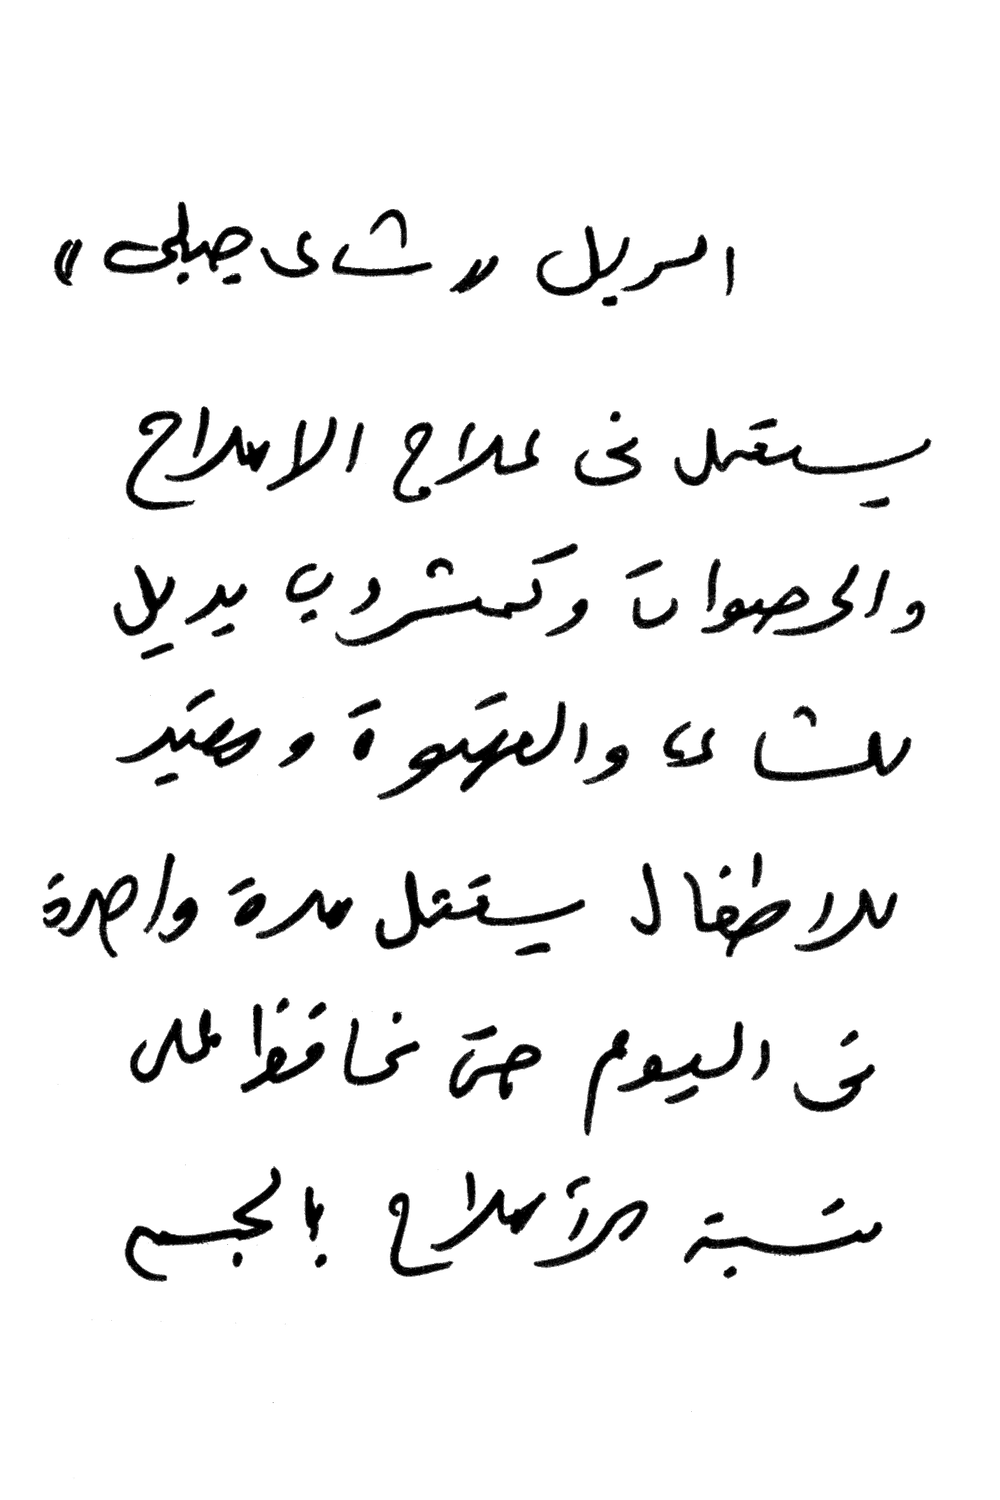 السريل « شاى جبلى »
يستعمل فى علاج الاملاح
والحصوات وكمشروب بديل
للشاى والقهوة ومفيد
للاطفال يستعمل مرة واحدة
فى اليوم حتى نحافظ على
نسبة الأملاح بالجسم